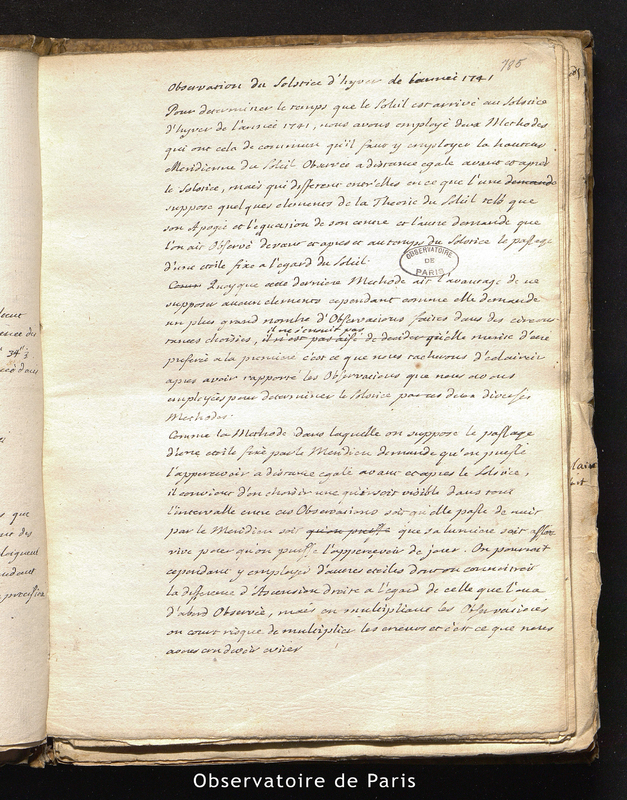 185
Observation du Solstice d'hyver de l'année 1741
Pour determiner le temps que le Soleil est arrivé au Solstice
d'hyver de l'année 1741, nous avons employé deux Methodes
qui ont cela de commun qu'il faut y employer la hauteur
Meridienne du Soleil Observée a distance egale avant et après
le Solstice, mais qui different entr'elles en ce que l'une demande
suppose quelques elements de la Theorie du Soleil tels que
son Apogée et l'equation de son centre et l'autre demande que
l'on ait Observé devant et apres et au temps du Solstice le passage
d'une etoile fixe a l'egard du Soleil.
OBSERVATOIRE
DE
PARIS
Quoyque cette derniere Methode ait l'avantage de ne
supposer aucun elements cependant comme elle demande
un plus grand nombre d'Observations faites dans des circons-
il ne s'ensuit pas
tances choisies, il n'est pas aisé de decider qu'elle merite d'etre
preferé a la premiere c'est ce que nous tacherons d'eclaircir
apres avoir rapporté les Observations que nous avons
employées pour determiner le Solstice par ces deux diverses
Methodes.
Comme la Methode dans laquelle on suppose le passage
d'une etoile fixe par le Meridien demande qu'on puisse
l'appercevoir a distance egale avant et apres le Solstice,
il convient d'en choisir une qui soit visible dans tout
l'intervalle entre ces Observations soit qu'elle passe de nuit
par le Meridien soit qu'on puisse que sa lumiere soit assez
vive pour qu'on puisse l'appercevoir de jour. On pourroit
cependant y employer d'autres etoiles dont on connoitroit
la difference d'Ascension droite a l'egard de celle que l'on a
d'abord Observée, mais en multipliant les Observations
on court risque de multiplier les erreurs et c'est ce que nous
avons cru devoir eviter
34"
que
des
Observatoire de Paris